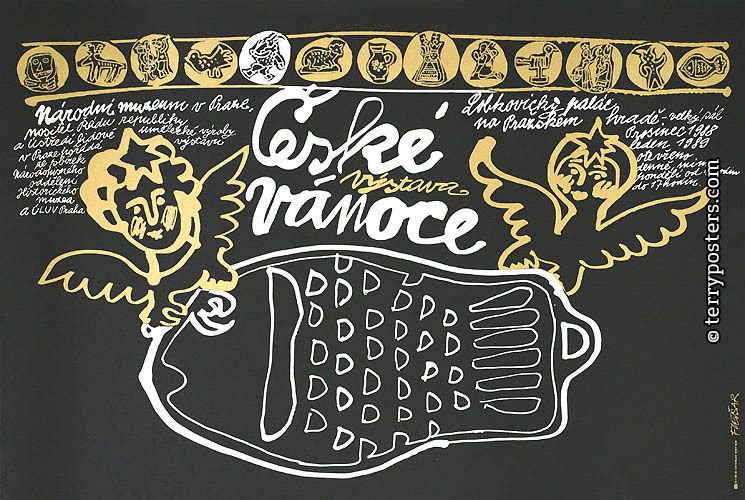 Národní muzeum v Praze,
nositel Řádu republiky
a Ústředí lidové umělecké výroby
v Praze pořádá výstavu
ze sbírek
Národopisného
oddělení
Historického
muzea
a ÚLUV Praha
České
výstava
vánoce
Lobkovický palác
na Pražském hradě - velký sál
Prosinec 1988
leden 1989
otevřeno
denně, mimo
pondělí od hodin
do 17 hodin
© terryposters.com
FIŠAR